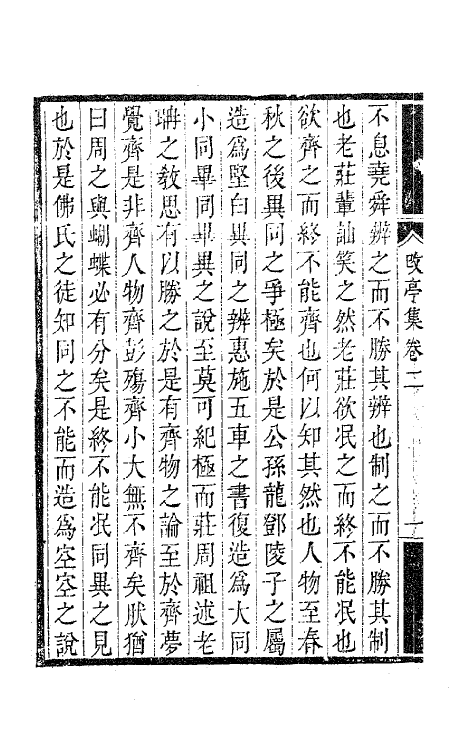 改亭集卷二
不息堯舜辨之而不勝其辨也制之而不勝其制
也老莊輩訕笑之然老莊欲泯之而終不能泯也
欲齊之而終不能齊也何以知其然也人物至春
秋之後異同之爭極矣於是公孫龍鄧陵子之屬
造為堅白異同之辨惠施五車之書復造為大同
小同畢同畢異之說至莫可紀極而莊周祖述老
聃之敎思有以勝之於是有齊物之論至於齊夢
覺齊是非齊人物齊彭殤齊小大無不齊矣肰猶
曰周之與蝴蝶必有分矣是終不能泯同異之見
也於是佛氏之徒知同之不能而造為空空之說